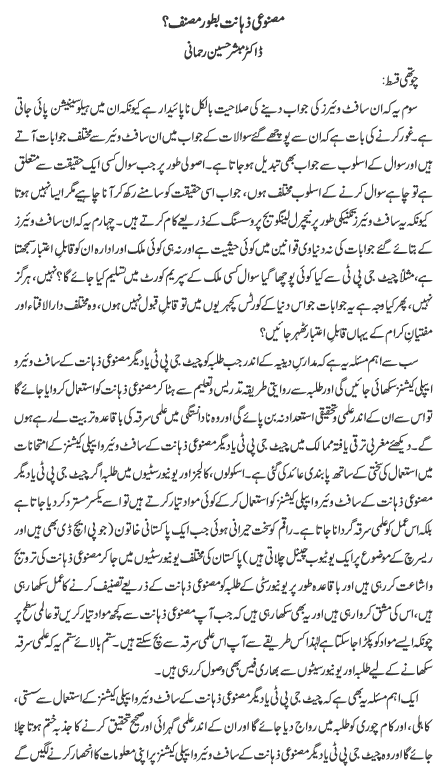 مصنوعی ذہانت بطور مصنف؟
ڈاکٹر مبشر حسین رحمانی
چوتھی قسط:
سوم یہ کہ ان سافٹ وئیرز کی جواب دینے کی صلاحیت بالکل ناپائیدار ہے کیونکہ ان میں ہیلوسینیشن پائی جاتی
ہے۔ غور کرنے کی بات ہے کہ ان سے پوچھے گئے سوالات کے جواب میں ان سافٹ وئیر سے مختلف جوابات آتے
ہیں اور سوال کے اسلوب سے جواب بھی تبدیل ہو جاتا ہے۔ اصولی طور پر جب سوال کسی ایک حقیقت سے متعلق
ہے تو چاہے سوال کرنے کے اسلوب مختلف ہوں، جواب اسی حقیقت کو سامنے رکھ کر آنا چاہیے مگر ایسا نہیں ہوتا
کیونکہ یہ سافٹ وئیرز تکنیکی طور پر نیچرل لینگویج پروسسنگ کے ذریعے کام کرتے ہیں۔ چہارم یہ کہ ان سافٹ وئیرز
کے بتائے گئے جوابات کی نہ دنیاوی قوانین میں کوئی حیثیت ہے اور نہ ہی کوئی ملک اور ادارہ ان کو قابلِ اعتبار سمجھتا
ہے، مثلاً چیٹ جی پی ٹی سے کیا کوئی پوچھا گیا سوال کسی ملک کے سپریم کورٹ میں تسلیم کیا جائے گا؟ نہیں، ہرگز
نہیں، پھر کیا وجہ ہے یہ جوابات جو اس دنیا کے کورٹس کچہریوں میں تو قابلِ قبول نہیں ہوں، وہ مختلف دارالافتاء اور
مفتیانِ کرام کے یہاں قابلِ اعتبار ٹھہر جائیں؟
سب سے اہم مسئلہ یہ ہے کہ مدارسِ دینیہ کے اندر جب طلبہ کو چیٹ جی پی ٹی یا دیگر مصنوعی ذہانت کے سافٹ وئیر و
ایپلی کیشنز سکھائی جائیں گی اور طلبہ سے روایتی طریقۂ تدریس و تعلیم سے ہٹا کر مصنوعی ذہانت کو استعمال کروایا جائے گا
تو اس سے ان کے اندر علمی و تحقیقی استعداد نہ بن پائے گی اور وہ نادانستگی میں علمی سرقہ کی باقاعدہ تربیت لے رہے ہوں
گے۔ دیکھئے مغربی ترقی یافتہ ممالک میں چیٹ جی پی ٹی یا دیگر مصنوعی ذہانت کے سافٹ وئیر و ایپلی کیشنز کے امتحانات
میں استعمال کی سختی کے ساتھ پابندی عائد کی گئی ہے۔ اسکولوں، کالجز اور یونیورسٹیوں میں طلبا اگر چیٹ جی پی ٹی یا دیگر
مصنوعی ذہانت کے سافٹ وئیر و ایپلی کیشنز کو استعمال کر کے کوئی مواد تیار کرتے ہیں تو اسے یکسر مسترد کر دیا جاتا ہے
بلکہ اس عمل کو علمی سرقہ گردانا جاتا ہے۔ راقم کو سخت حیرانی ہوئی جب ایک پاکستانی خاتون (جو پی ایچ ڈی بھی ہیں اور
ریسرچ کے موضوع پر ایک یوٹیوب چینل چلاتی ہیں) پاکستان کی مختلف یونیورسٹیوں میں جا کر مصنوعی ذہانت کی ترویج
و اشاعت کر رہی ہیں اور باقاعدہ طور پر یونیورسٹی کے طلبہ کو مصنوعی ذہانت کے ذریعے تصنیف کرنے کا عمل سکھا رہی
ہیں، اس کی مشق کروا رہی ہیں اور یہ بھی سکھا رہی ہیں کہ جب آپ مصنوعی ذہانت سے کچھ مواد تیار کریں تو عالمی سطح پر
چونکہ ایسے مواد کو پکڑا جا سکتا ہے لہٰذا کس طریقے سے آپ اس علمی سرقہ سے بچ سکتے ہیں۔ ستم بالائے ستم یہ کہ علمی سرقہ
سکھانے کے لیے طلبہ اور یونیورسٹیوں سے بھاری فیس بھی وصول کر رہی ہیں۔
ایک اہم مسئلہ یہ بھی ہے کہ چیٹ جی پی ٹی یا دیگر مصنوعی ذہانت کے سافٹ وئیر و ایپلی کیشنز کے استعمال سے سستی،
کاہلی، اور کام چوری کو طلبہ میں رواج دیا جائے گا اور ان کے اندر علمی گہرائی اور صحیح تحقیق کرنے کا جذبہ ختم ہوتا چلا
جائے گا اور وہ چیٹ جی پی ٹی یا دیگر مصنوعی ذہانت کے سافٹ وئیر و ایپلی کیشنز پر اپنی معلومات کا انحصار کرنے لگیں گے